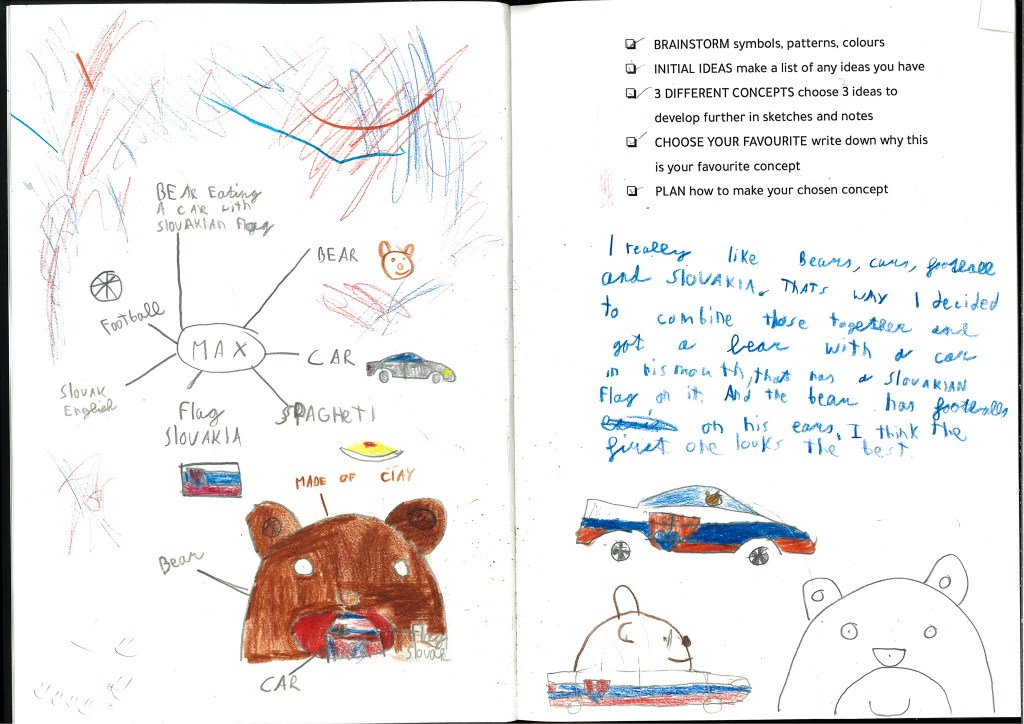 BEAR Eating
A CAR with
SLOVAKIAN Flag
BEAR
Football
MAX
CAR
SLOVAK
English
Flag
SLOVAKIA
SPAGHETI
MADE OF CLAY
Bear
Flag
Slovak
CAR
BRAINSTORM symbols, patterns, colours
INITIAL IDEAS make a list of any ideas you have
3 DIFFERENT CONCEPTS choose 3 ideas to
develop further in sketches and notes
CHOOSE YOUR FAVOURITE write down why this
is your favourite concept
PLAN how to make your chosen concept
I really like Bears, cars, football
and SLOVAKIA. THATS WAY I decided
to combine those together and
got a bear with a car
in his mouth, that has a SLOVAKIAN
Flag on it. And the bear has footballs
on his ears, I think the
first one looks the best.